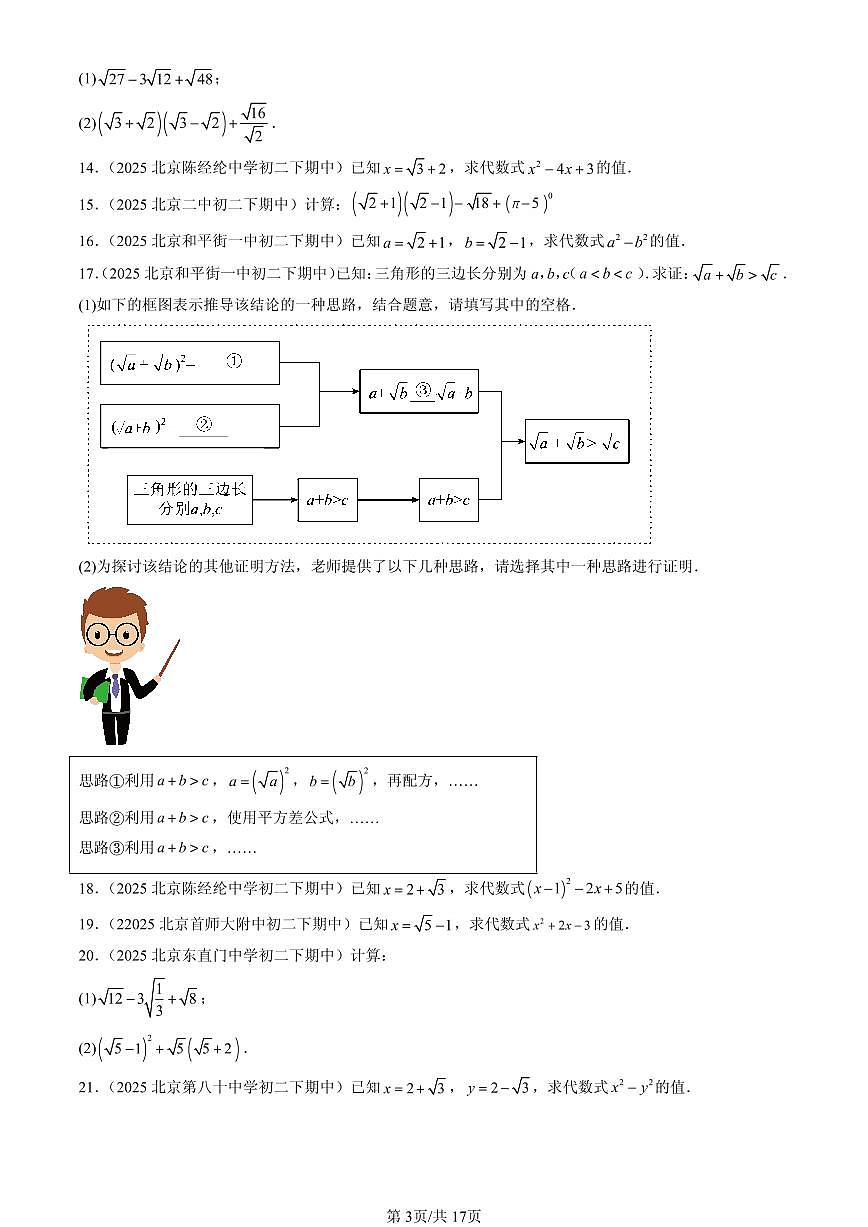 (1)√27−3√12+√48；
(2)(√3+√2)(√3−√2)+√16/√2．
14．（2025 北京陈经纶中学初二下期中）已知 x=√3+2，求代数式 x²−4x+3的值．
15．（2025 北京二中初二下期中）计算：(√2+1)(√2−1)−√18+(π−5)⁰
16．（2025 北京和平街一中初二下期中）已知 a=√2+1，b=√2−1，求代数式 a²−b²的值．
17．（2025 北京和平街一中初二下期中）已知：三角形的三边长分别为 a，b，c（a<b<c）．求证：√a+√b>√c．
(1)如下的框图表示推导该结论的一种思路，结合题意，请填写其中的空格．
(√a+√b)²= ①
a+√b ③ √a b
(√a+b)² ②
√a+√b>√c
三角形的三边长
分别a,b,c
a+b>c
a+b>c
(2)为探讨该结论的其他证明方法，老师提供了以下几种思路，请选择其中一种思路进行证明．
思路①利用 a+b>c，a=(√a)²，b=(√b)²，再配方，……
思路②利用 a+b>c，使用平方差公式，……
思路③利用 a+b>c，……
18．（2025 北京陈经纶中学初二下期中）已知 x=2+√3，求代数式(x−1)²−2x+5的值．
19．（22025 北京首师大附中初二下期中）已知 x=√5−1，求代数式 x²+2x−3的值．
20．（2025 北京东直门中学初二下期中）计算：
(1)√12−3√(1/3)+√8；
(2)(√5−1)²+√5(√5+2)．
21．（2025 北京第八十中学初二下期中）已知 x=2+√3，y=2−√3，求代数式 x²−y²的值．
第 3页/共 17页